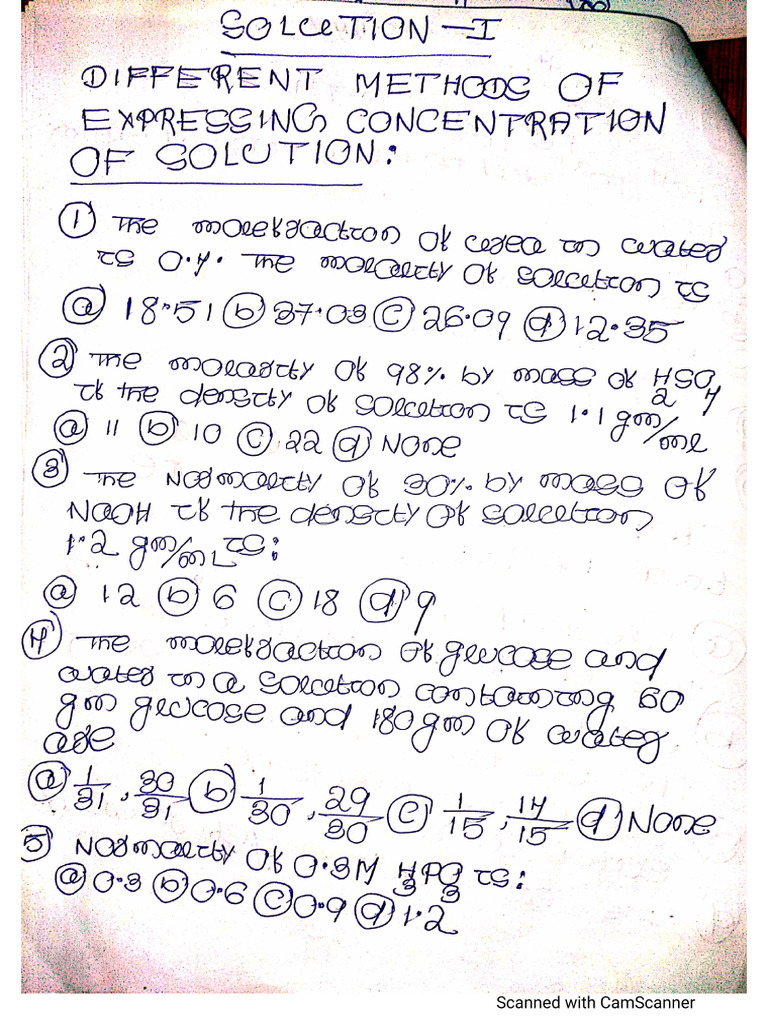 SOLUTION - I
DIFFERENT METHODS OF
EXPRESSING CONCENTRATION
OF SOLUTION:
① The molefraction of urea in water
is 0.4. The molality of solution is
ⓐ 18.51 ⓑ 37.03 ⓒ 26.09 ⓓ 12.35
② The molarity of 98% by mass of H2SO4
if the density of solution is 1.1 gm/ml
ⓐ 11 ⓑ 10 ⓒ 22 ⓓ None
③ The Normality of 30% by mass of
NaOH if the density of solution
1.2 gm/mL is:
ⓐ 12 ⓑ 6 ⓒ 18 ⓓ 9
④ The molefraction of glucose and
water in a solution containing 60
gm glucose and 180 gm of water
are
ⓐ 1/31, 30/31 ⓑ 1/30, 29/30 ⓒ 1/15, 14/15 ⓓ None
⑤ Normality of 0.3M H3PO3 is:
ⓐ 0.3 ⓑ 0.6 ⓒ 0.9 ⓓ 1.2
Scanned with CamScanner